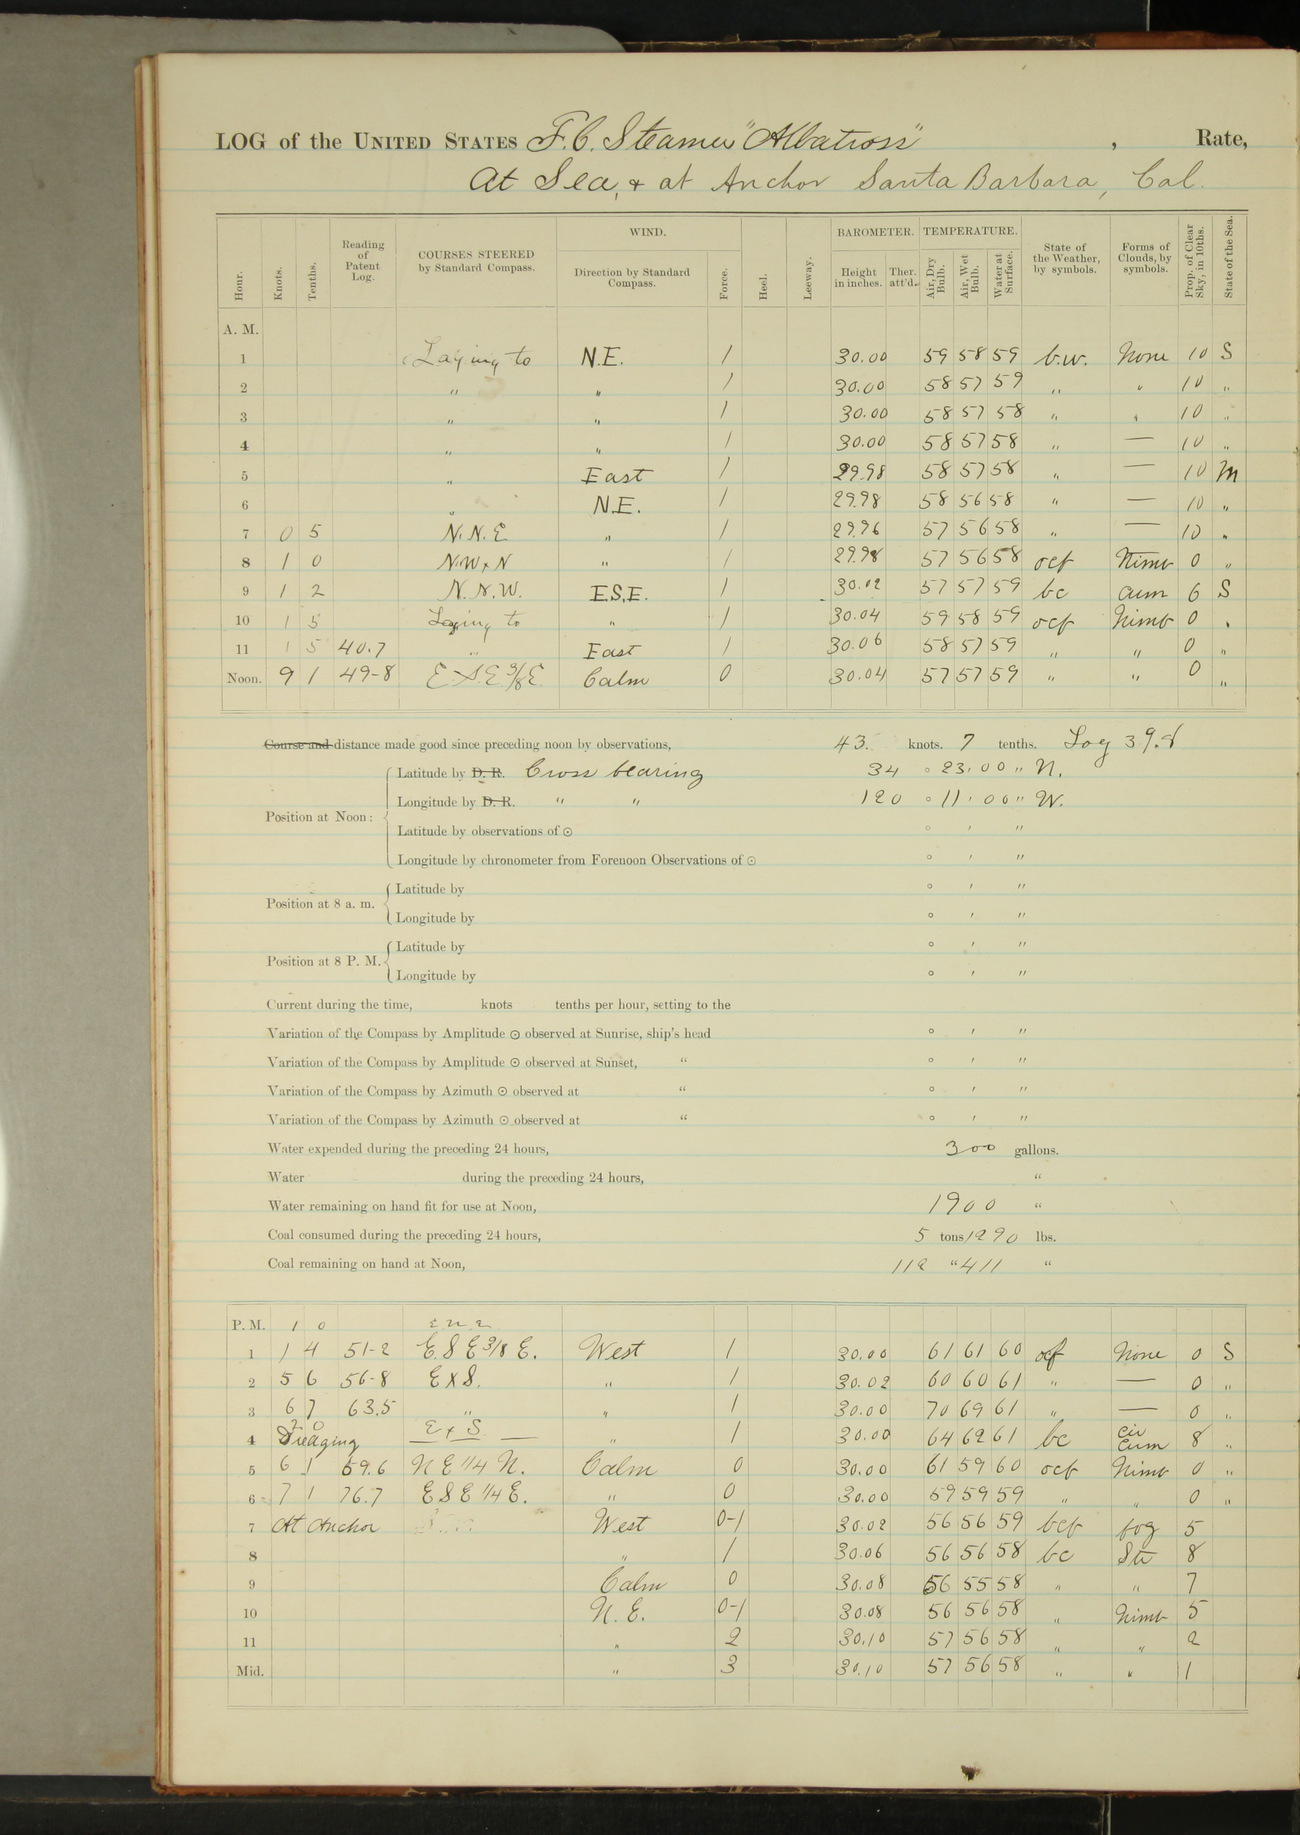 LOG of the UNITED STATES F.C. Steamer "Albatross", Rate,
At Sea, & at Anchor Santa Barbara, Cal.
Hour. Knots. Tenths. Reading of Patent Log. COURSES STEERED by Standard Compass. WIND. Direction by Standard Compass. Force. Heel. Leeway. BAROMETER. Height in inches. Ther. att'd. TEMPERATURE. Air, Dry Bulb. Air, Wet Bulb. Water at Surface. State of the Weather, by symbols. Forms of Clouds, by symbols. Prop. of Clear Sky, in 10ths. State of the Sea.
A. M.
1 Laying to N.E. 1 30.00 59 58 59 b.w. None 10 S
2 " " 1 30.00 58 57 59 " " 10 "
3 " " 1 30.00 58 57 58 " " 10 "
4 " " 1 30.00 58 57 58 " — 10 "
5 " East 1 29.98 58 57 58 " — 10 M
6 " N.E. 1 29.98 58 56 58 " — 10 "
7 0 5 N.N.E " 1 29.96 57 56 58 " — 10 "
8 1 0 N.W x N " 1 29.98 57 56 58 ocf Nimb 0 "
9 1 2 N.N.W. E.S.E. 1 30.02 57 57 59 bc Cum 6 S
10 1 5 Laying to " 1 30.04 59 58 59 ocf Nimb 0 "
11 1 5 40.7 " East 1 30.06 58 57 59 " " 0 "
Noon. 9 1 49-8 E.S.E 3/8 E Calm 0 30.04 57 57 59 " " 0 "
Course and distance made good since preceding noon by observations, 43. knots. 7 tenths. Log 39.8
Position at Noon:
Latitude by D. R. Cross bearing 34 ° 23 ' 00 " N.
Longitude by D. R. " " 120 ° 11 ' 00 " W.
Latitude by observations of ⊙ ° ' "
Longitude by chronometer from Forenoon Observations of ⊙ ° ' "
Position at 8 a. m.
Latitude by ° ' "
Longitude by ° ' "
Position at 8 P. M.
Latitude by ° ' "
Longitude by ° ' "
Current during the time, knots tenths per hour, setting to the
Variation of the Compass by Amplitude ⊙ observed at Sunrise, ship's head ° ' "
Variation of the Compass by Amplitude ⊙ observed at Sunset, " ° ' "
Variation of the Compass by Azimuth ⊙ observed at " ° ' "
Variation of the Compass by Azimuth ⊙ observed at " ° ' "
Water expended during the preceding 24 hours, 300 gallons.
Water during the preceding 24 hours, "
Water remaining on hand fit for use at Noon, 1900 "
Coal consumed during the preceding 24 hours, 5 tons 1290 lbs.
Coal remaining on hand at Noon, 112 " 411 "
P. M. 1 0 E N E
1 1 4 51-2 E. S E 3/8 E. West 1 30.00 61 61 60 ocf None 0 S
2 5 6 56-8 E X S. " 1 30.02 60 60 61 " — 0 "
3 6 7 63.5 " " 1 30.00 70 69 61 " — 0 "
4 Dredging E x S. — " 1 30.00 64 62 61 bc Cir Cum 8 "
5 6 1 69.6 N E 1/4 N. Calm 0 30.00 61 59 60 ocf Nimb 0 "
6 7 1 76.7 E S E 1/4 E. " 0 30.00 59 59 59 " " 0 "
7 At Anchor West 0-1 30.02 56 56 59 bcf fog 5
8 " 1 30.06 56 56 58 bc Str 8
9 Calm 0 30.08 56 55 58 " " 7
10 N. E. 0-1 30.08 56 56 58 " Nimb 5
11 " 2 30.10 57 56 58 " " 2
Mid. " 3 30.10 57 56 58 " " 1